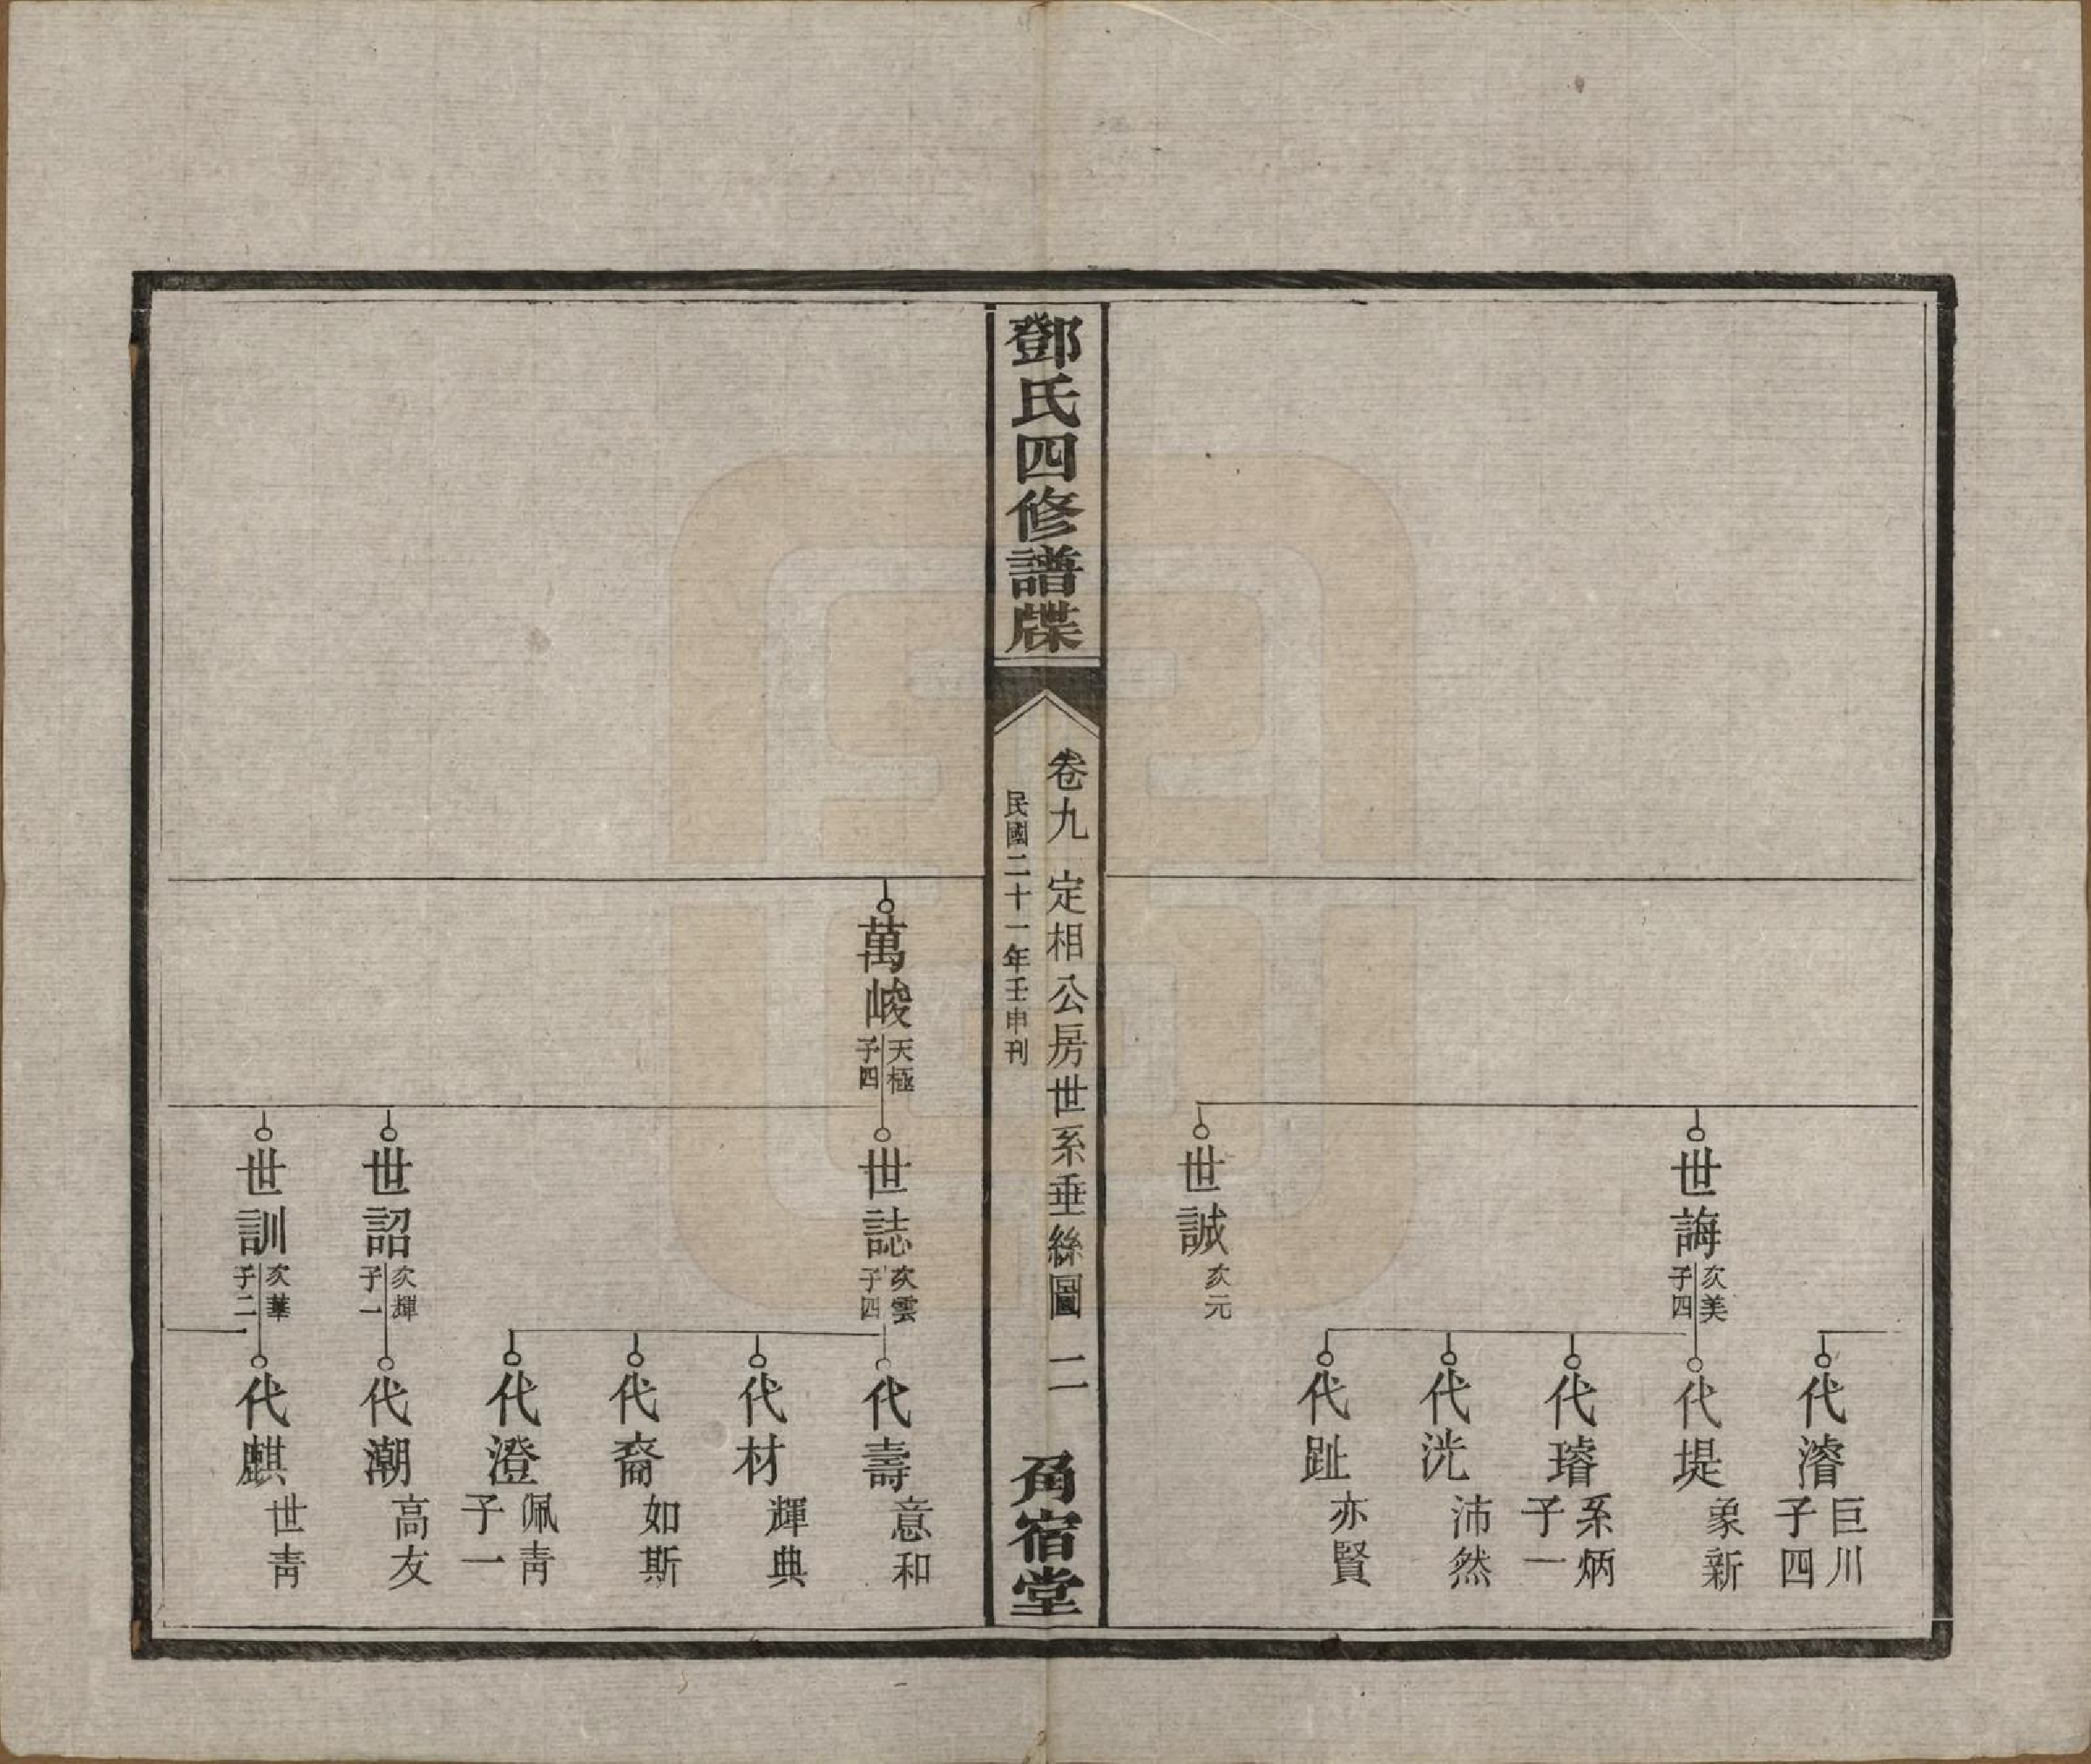 代濬 巨川 子四
世誨 次美 子四
代堤 象新
代璿 系炳 子一
代洸 沛然
代趾 亦賢
世誠 次元
鄧氏四修譜牒
卷九 定相公房世系垂絲圖 二
民國二十一年壬申刊
角宿堂
萬峻 天極 子四
世誌 次雲 子四
代壽 意和
代材 輝典
代裔 如斯
代澄 佩青 子一
世詔 次輝 子一
代潮 高友
世訓 次華 子二
代麒 世青